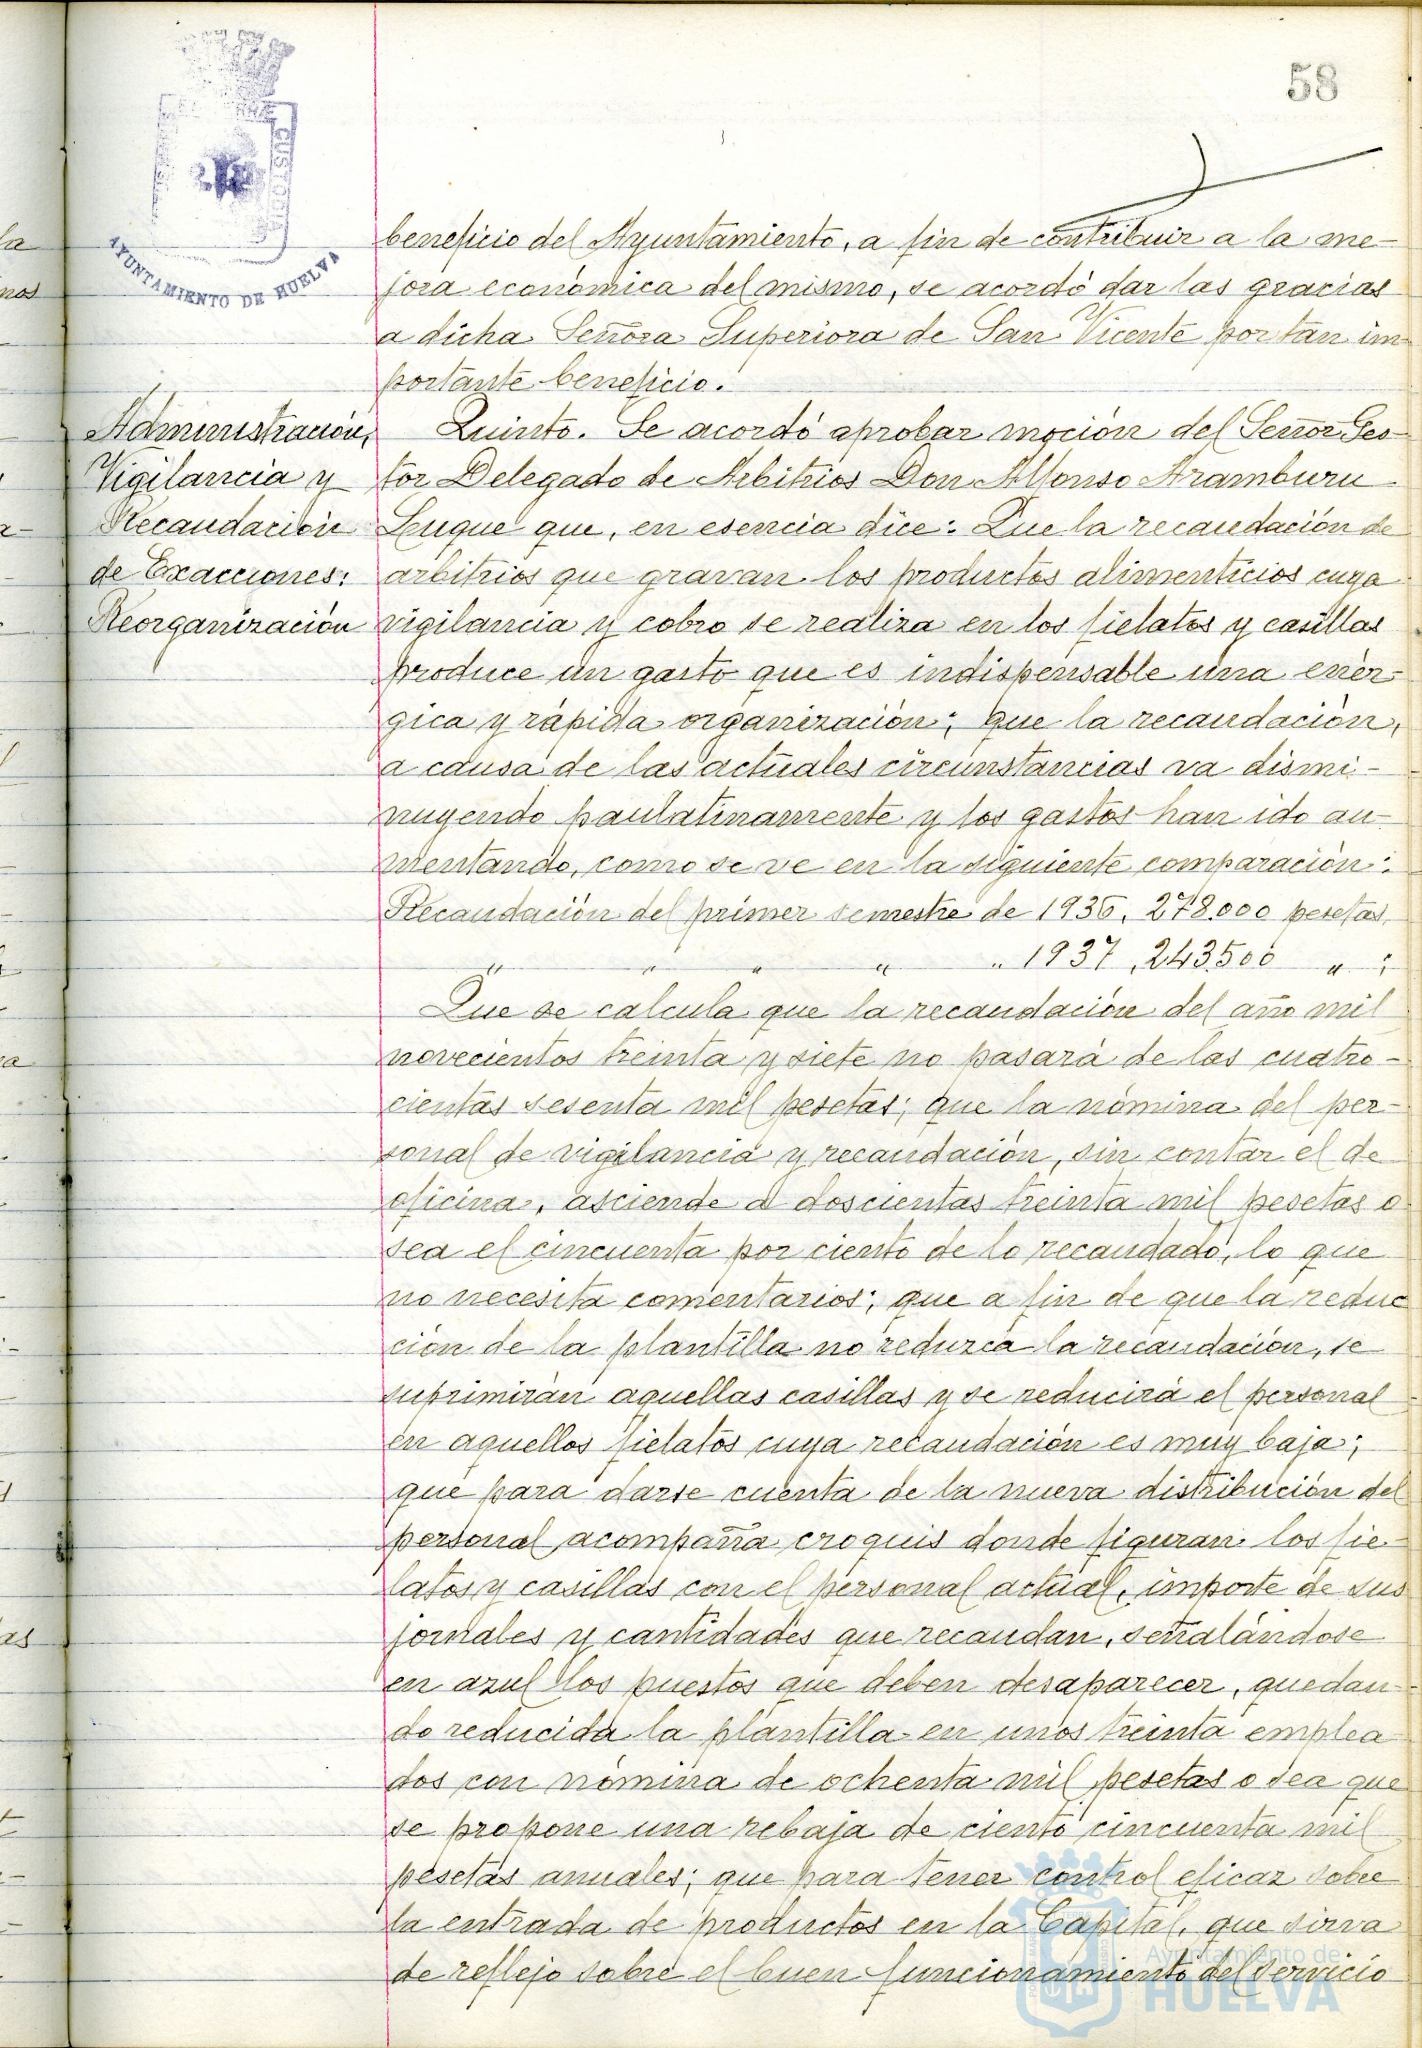 58
AYUNTAMIENTO DE HUELVA
CUSTODIA
beneficio del Ayuntamiento, a fin de contribuir a la me-
jora económica del mismo, se acordó dar las gracias
a dicha Señora Superiora de San Vicente por tan im-
portante beneficio.
Administración,
Vigilancia y
Recaudación
de Exacciones:
Reorganización
Quinto. Se acordó aprobar moción del Señor Ges-
tor Delegado de Arbitrios Don Alfonso Aramburu
Luque que, en esencia dice: Que la recaudación de
arbitrios que gravan los productos alimenticios cuya
vigilancia y cobro se realiza en los fielatos y casillas
produce un gasto que es indispensable una enér-
gica y rápida organización; que la recaudación,
a causa de las actuales circunstancias va dismi-
nuyendo paulatinamente y los gastos han ido au-
mentando, como se ve en la siguiente comparación:
Recaudación del primer semestre de 1936, 278.000 pesetas
" " " " " 1937, 243.500 " ;
Que se calcula que la recaudación del año mil
novecientos treinta y siete no pasará de las cuatro-
cientas sesenta mil pesetas; que la nómina del per-
sonal de vigilancia y recaudación, sin contar el de
oficina, asciende a doscientas treinta mil pesetas o
sea el cincuenta por ciento de lo recaudado, lo que
no necesita comentarios; que a fin de que la reduc
ción de la plantilla no reduzca la recaudación, se
suprimirán aquellas casillas y se reducirá el personal
en aquellos fielatos cuya recaudación es muy baja;
que para darse cuenta de la nueva distribución del
personal acompaña croquis donde figuran los fie-
latos y casillas con el personal actual, importe de sus
jornales y cantidades que recaudan, señalándose
en azul los puestos que deben desaparecer, quedan-
do reducida la plantilla en unos treinta emplea
dos con nómina de ochenta mil pesetas o sea que
se propone una rebaja de ciento cincuenta mil
pesetas anuales; que para tener control eficaz sobre
la entrada de productos en la Capital, que sirva
de reflejo sobre el buen funcionamiento del servicio
Ayuntamiento de
HUELVA